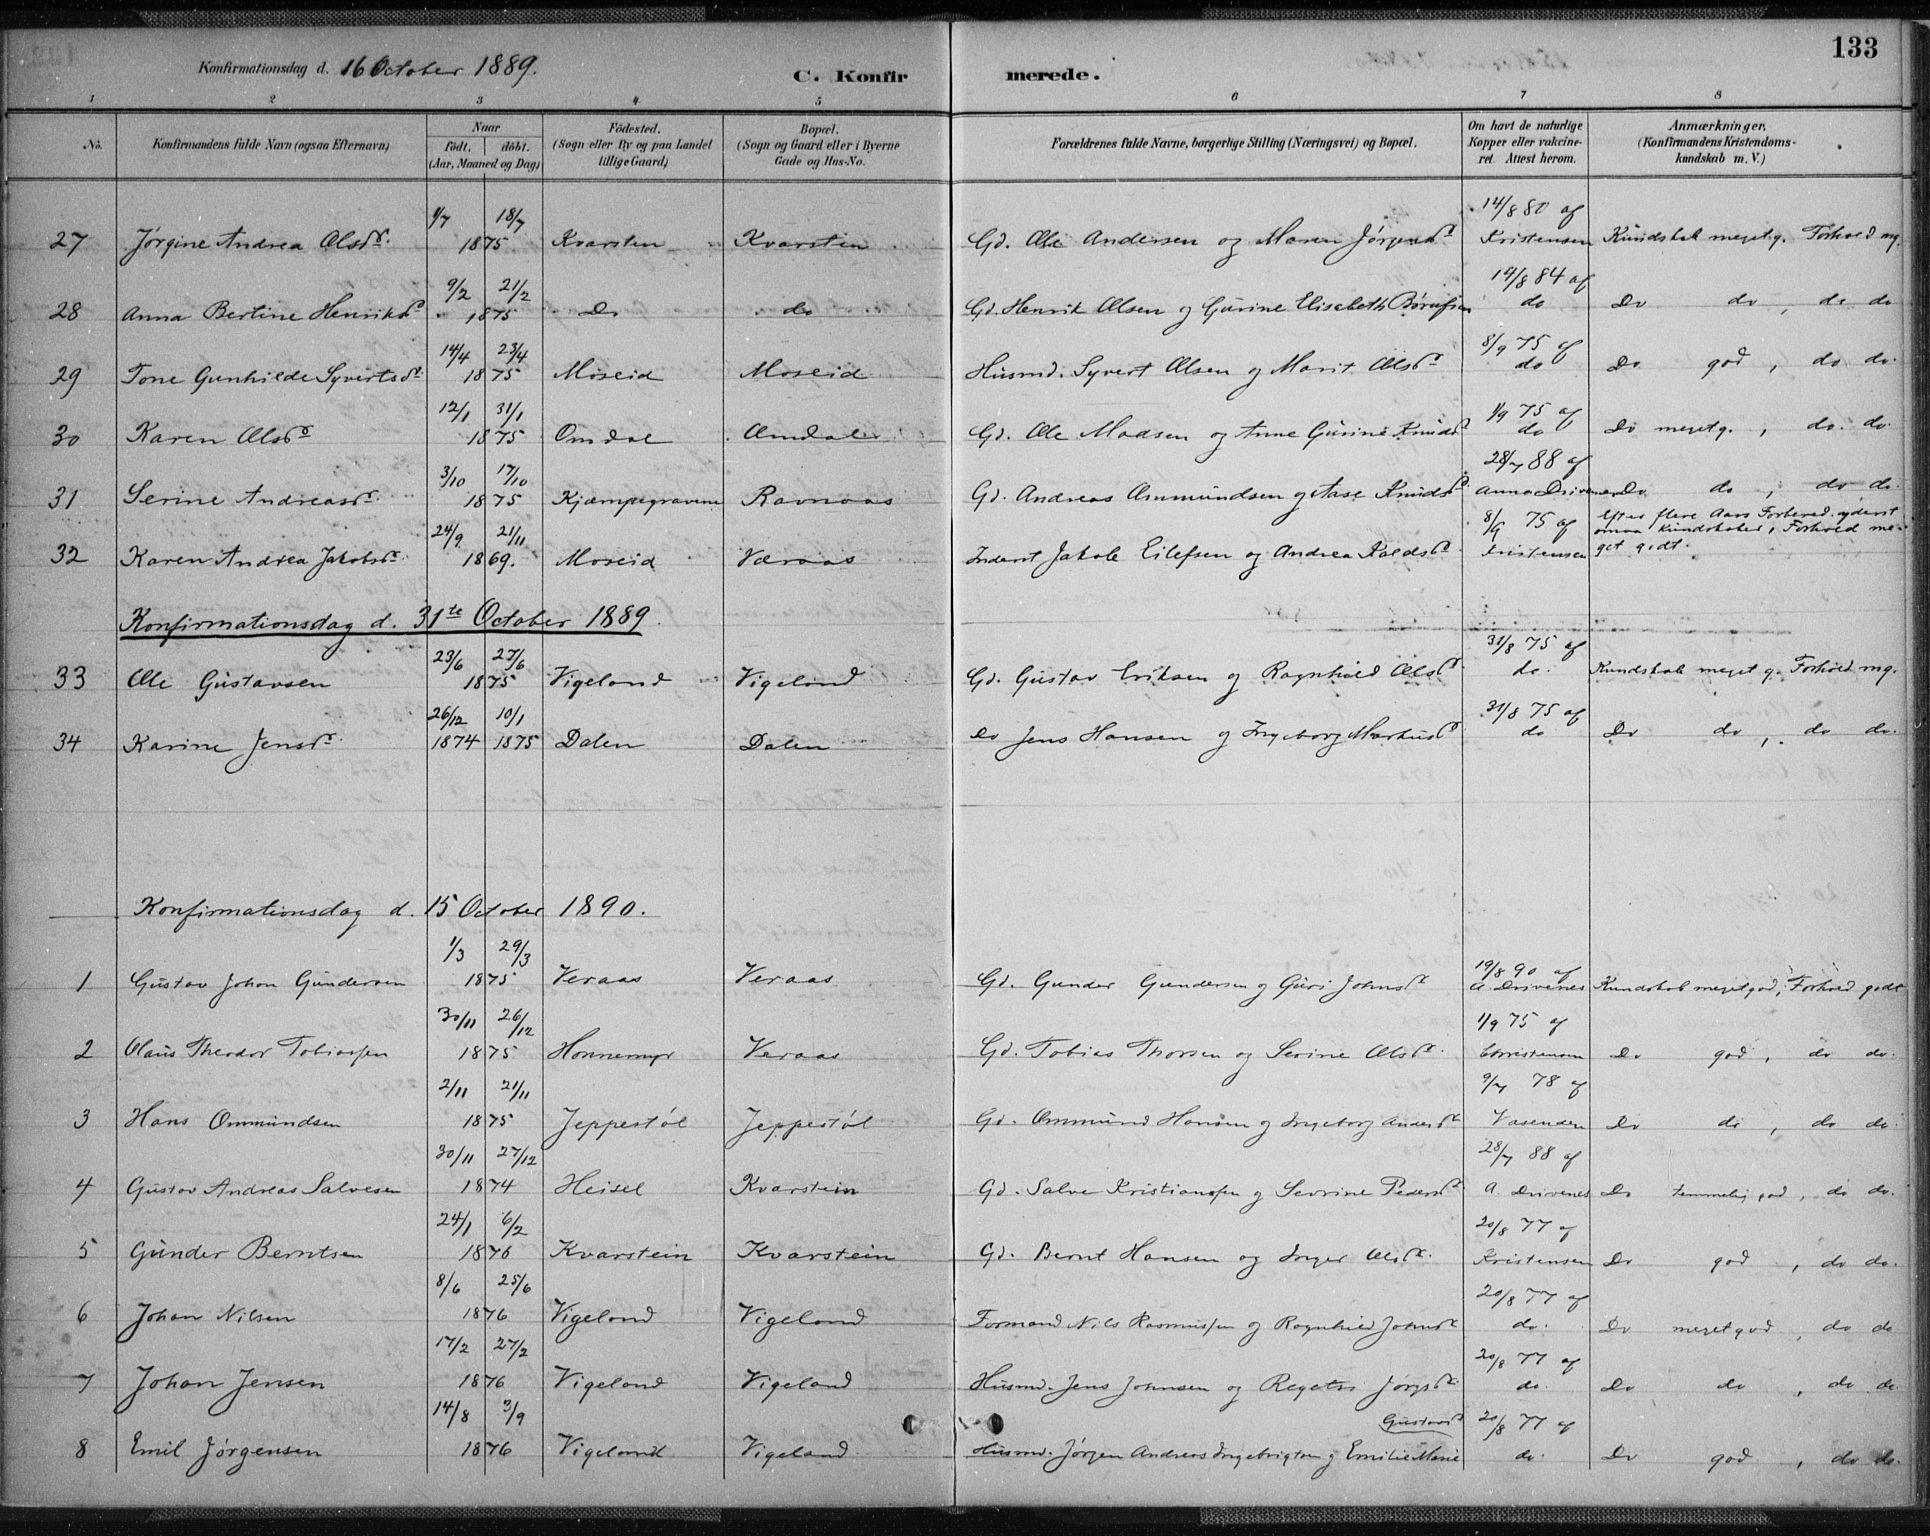 133
Konfirmationsdag d. 16 October 1889.
C. Konfir merede.
1 2 3 4 5 6 7 8
No.
Konfirmandens fulde Navn (ogsaa Efternavn)
Naar
födt. döbt.
(Aar, Maaned og Dag)
Födested.
(Sogn eller By og paa Landet
tillige Gaard)
Bopæl.
(Sogn og Gaard eller i Byerne
Gade og Hus-No.
Forældrenes fulde Navne, borgerlige Stilling (Næringsvei) og Bopæl.
Om havt de naturlige
Kopper eller vakcine-
ret. Attest herom.
Anmærkninger.
(Konfirmandens Kristendoms-
kundskab m. V.)
1/7 18/7 14/8 80 af
27 Jørgine Andrea Olsd. 1875 Kvarsten Kvarstein Gd. Ole Andersen og Maren Jørgensd Kristensen Kundskab meget g. Forhold mg.
9/2 21/2 19/8 84 af
28 Anna Bertine Henriksd 1875 Do do Gd. Henrik Olsen og Gurine Elisabeth do Do do, do do
14/4 23/4 8/9 75 af
29 Tone Gunhilde Syvertsd. 1875 Moseid Moseid Husmd. Syvert Olsen og Marit Olsd do Do god, do do
12/1 31/1 1/9 75 af
30 Karen Olsd 1875 Omdal Omdal Gd. Ole Madsen og Anne Gurine Knudsd do Do meget g., do. do.
3/10 17/10 28/7 88 af
31 Serine Andreasd. 1875 Kjæmpegravene Ravnaas Gd. Andreas Ommundsen og Aase Knudsd Anna Drivenes Do do, do do
24/9 21/11 8/9 75 af Efter flere Aars Forbered. yderst
smaa Kundskaber, Forhold me-
32 Karen Andrea Jakobsd. 1869. Moseid Væraas Inderst Jakob Eilefsen og Andrea Kristensen get godt.
Konfirmationsdag d. 31te October 1889.
23/6 27/6 31/8 75 af
33 Ole Gustavsen 1875 Vigeland Vigeland Gd. Gustav Eriksen og Ragnhild Olsd do. Kundskab meget g. Forhold mg.
26/12 10/1 31/8 75 af
34 Karine Jensd. 1874 1875 Dalen Dalen Do Jens Hansen og Ingeborg Markusd do Do do, do do.
Konfirmationsdag d. 15 October 1890.
1/3 29/3 19/8 90 af
1 Gustav Johan Gundersen 1875 Veraas Veraas Gd. Gunder Gundersen og Guri Johnsd A. Drivenes Kundskab meget god, Forhold godt
30/11 26/12 1/9 75 af
2 Olaus Theodor Tobiassen 1875 Honnemyr Veraas Gd. Tobias Thorsen og Serine Olsd. Christensen Do god, do do.
2/11 21/11 9/7 78 af
3 Hans Ommundsen 1875 Jeppestøl Jeppestøl Gd. Ommund Hansen og Ingeborg Andersd Vasenden Do do, do do.
30/11 27/12 28/7 88 af
4 Gustav Andreas Salvesen 1874 Heisel Kvarstein Gd. Salve Kristianssen og Sevrine Pedersd A. Drivenes Do temmelig god, do do.
24/1 6/2 20/8 77 af
5 Gunder Berntsen 1876 Kvarstein Kvarstein Gd. Bernt Hansen og Inger Olsd. Kristensen Do god, do do.
8/6 25/6 20/8 77 af
6 Johan Nilsen 1876 Vigeland Vigeland Formand Nils Rasmussen og Ragnhild Johnsd do. Do meget god, do do
17/2 27/2 20/8 77 af
7 Johan Jensen 1876 Vigeland Vigeland Husmd. Jens Johnsen og do. Do do, do do.
14/8 3/9 Gustavsd 20/8 77 af
8 Emil Jørgensen 1876 Vigeland Vigeland Husmd. Jørgen Andreas Ingebrigtsen og Emilie Marie do. Do god, do do.